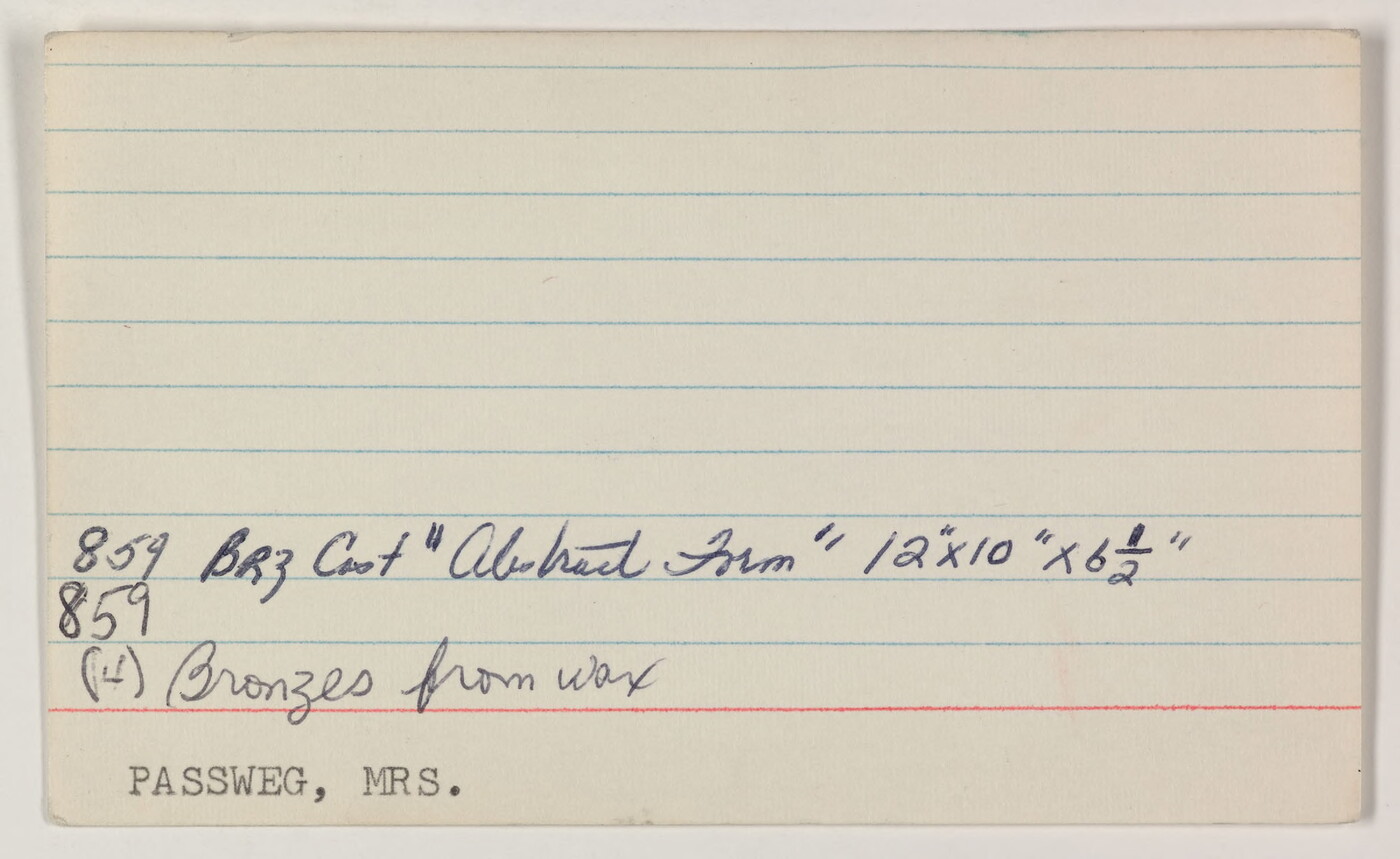 859 BRZ Cast "Abstract Form" 12"x10"x6 1/2"
859
(4) Bronzes from wax
PASSWEG, MRS.